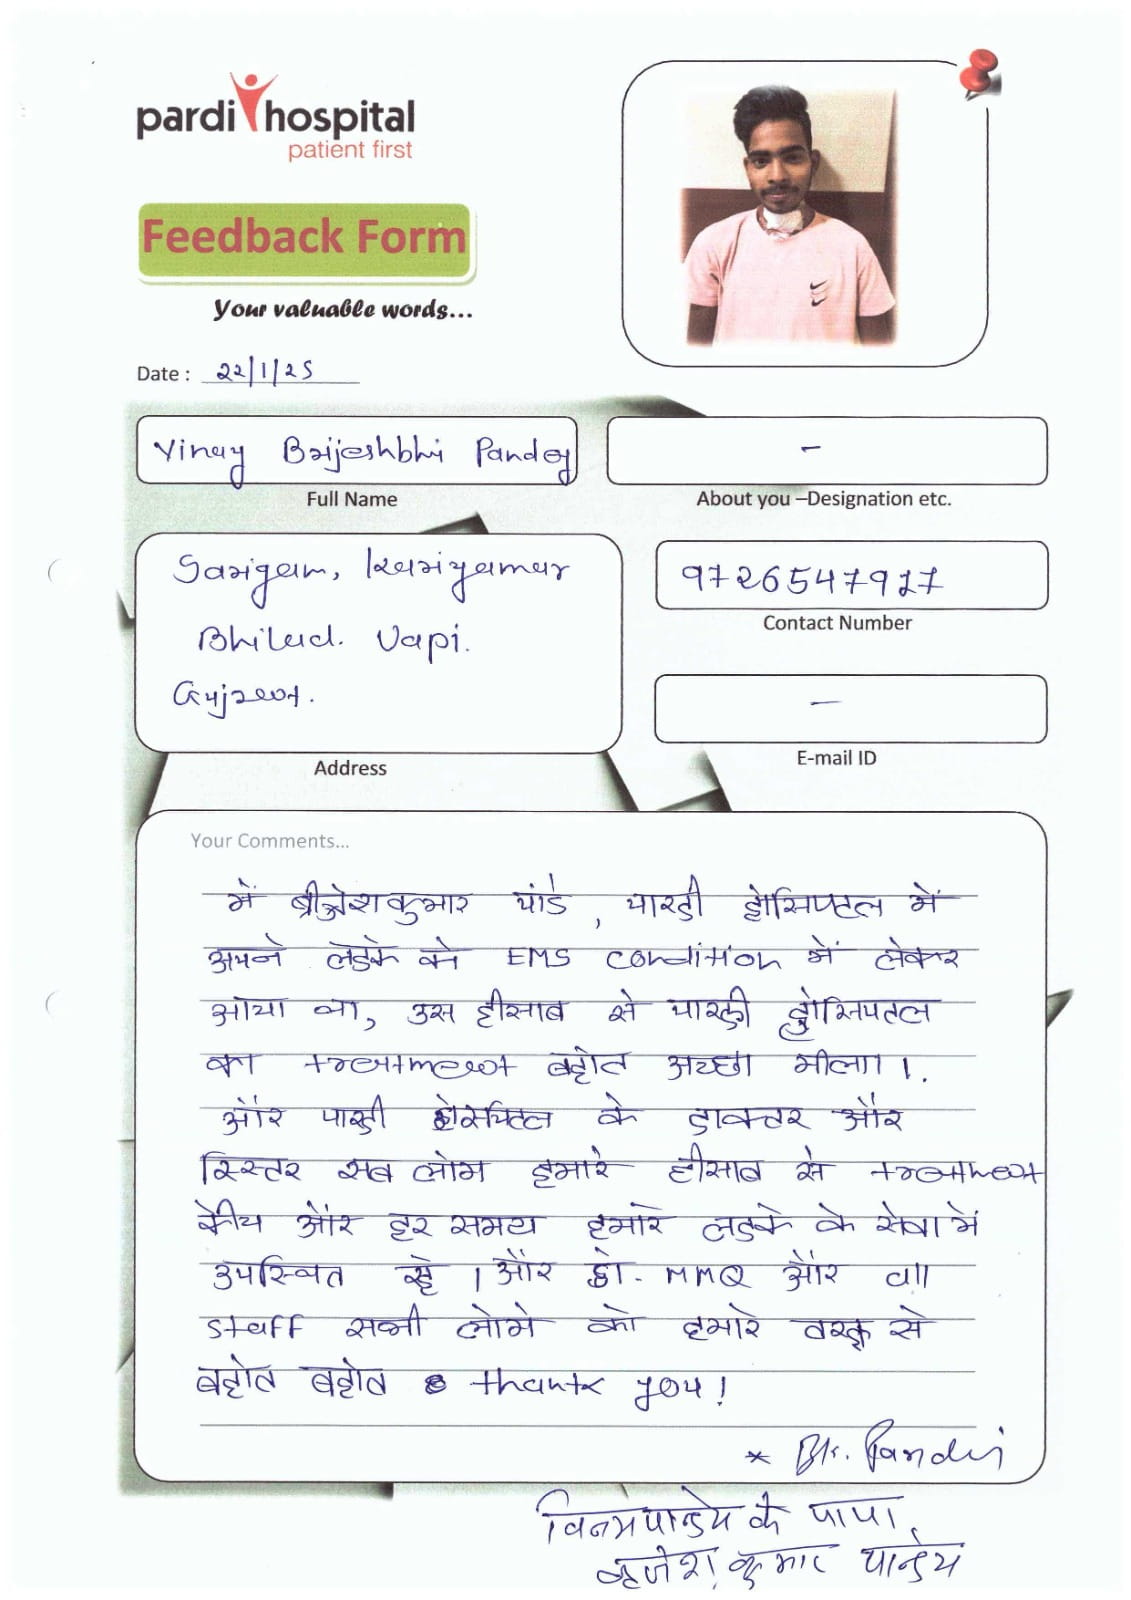 pardi hospital
patient first
Feedback Form
Your valuable words...
Date : 22/1/25
Vinay Brijeshbhi Pandey
-
Full Name
About you –Designation etc.
Sarigam, Kariyamur
Bhilad. Vapi.
Gujraat.
Address
9726547927
Contact Number
-
E-mail ID
Your Comments...
में ब्रीजेशकुमार पांडे, पारडी होसिप्टल में
अपने लडके को EMS condition में लेकर
आया था, उस हीसाब से पारडी होसिपटल
का treatment बहोत अच्छा मीला।
और पारडी होस्पिटल के डाक्टर और
सिस्टर सब लोग हमारे हीसाब से treatment
कीय और हर समय हमारे लडके के सेवा में
उपस्थित रहे। और डो. MMQ और all
staff सभी लोगो को हमारे तरफ से
बहोत बहोत thank you!
* Br. Pandey
विनय पान्डेय के पापा,
ब्रजेश कुमार पान्डेय